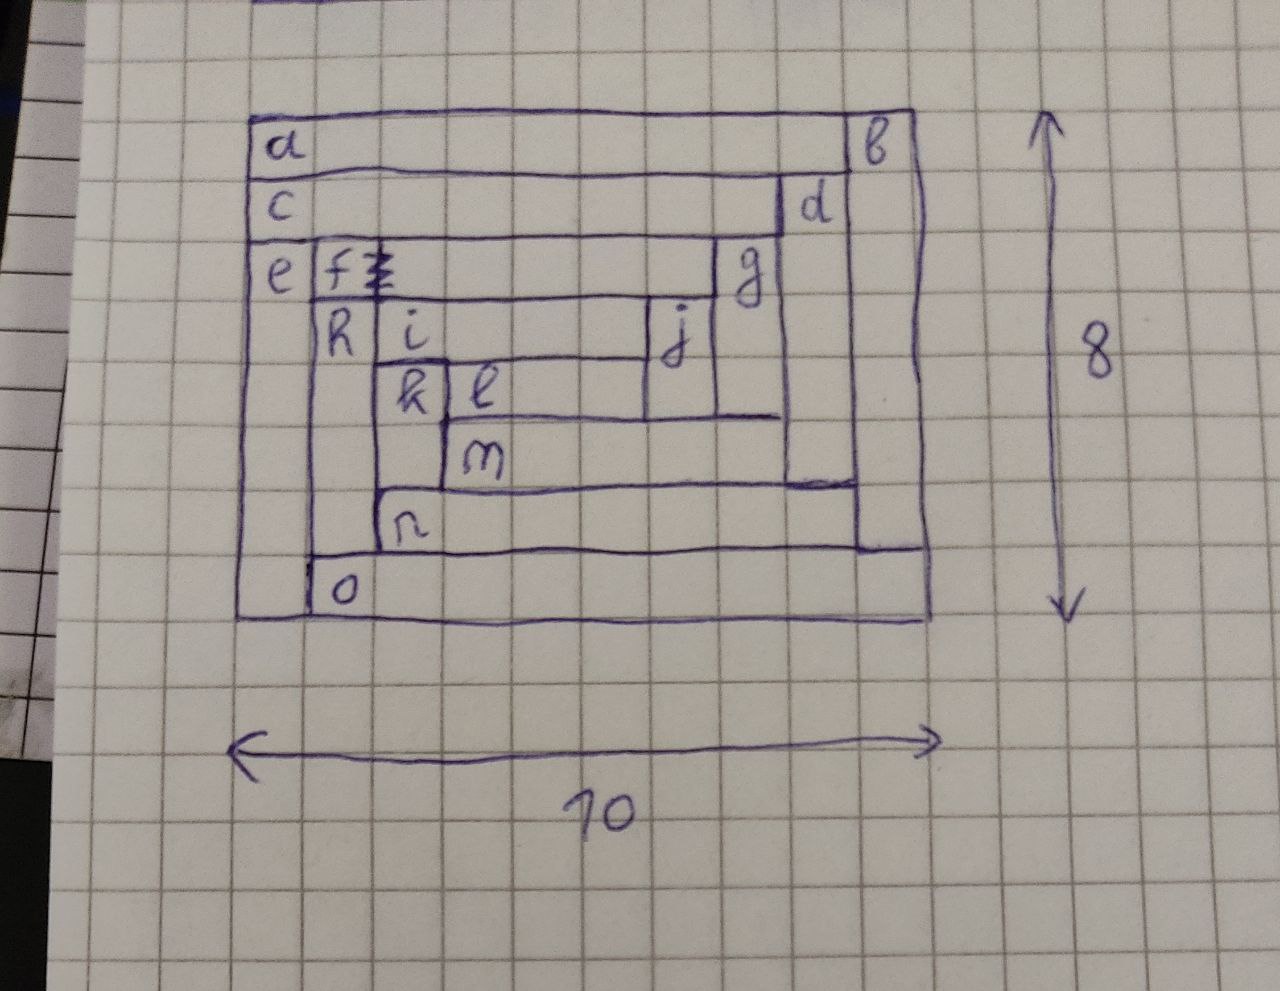 a b
c d
e f g
h i j 8
k l
m
n
o
10